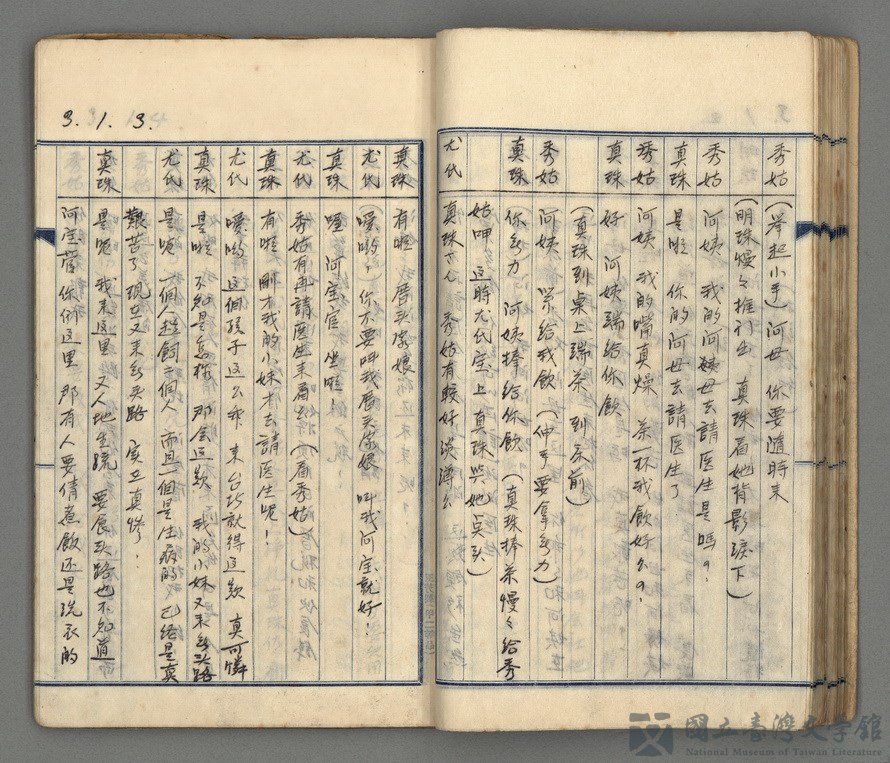 秀姑 (举起小手) 阿母 你要随時来
(明珠慢々推门出 真珠看她背影淚下)
秀姑 阿姨 我的阿姨母去請医生是嗎?
真珠 是啦 你的阿母去請医生了
秀姑 阿姨 我的嘴真燥 茶一杯我飲好么?
真珠 好 阿姨端给你飲
(真珠到桌上端茶 到床前)
秀姑 阿姨 给我飲 (伸手要拿無力)
真珠 你無力 阿姨捧给你飲 (真珠捧茶慢々给秀
姑呷 这時尤氏 上 真珠與她点头)
尤氏 真珠さん 秀姑有較好淡薄么
3.1.3.
真珠 有啦 厝头家娘
尤氏 (嗳喲! 你不要叫我厝头家娘 叫我阿宝就好!
真珠 喔 阿宝官 坐啦!
尤氏 秀姑有再請医生来看么 (看秀姑)
真珠 有啦 剛才我的小妹才去請医生呢!
尤氏 嗳喲 这個孩子这么乖 来台北就得这款 真可憐
真珠 是啦 不知是怎樣 那会这款 我的小妹又来無头路
尤氏 是呢 一個人趁飼二個人 而且一個是生病的 已经是真
艱苦了 现在又来無头路 实在真慘!
真珠 是呢 我来这里 又人地生疏 要食头路也不知道
阿宝官 你们这里 那有人要倩煮飯还是洗衣的
國立臺灣文學館
National Museum of Taiwan Literature